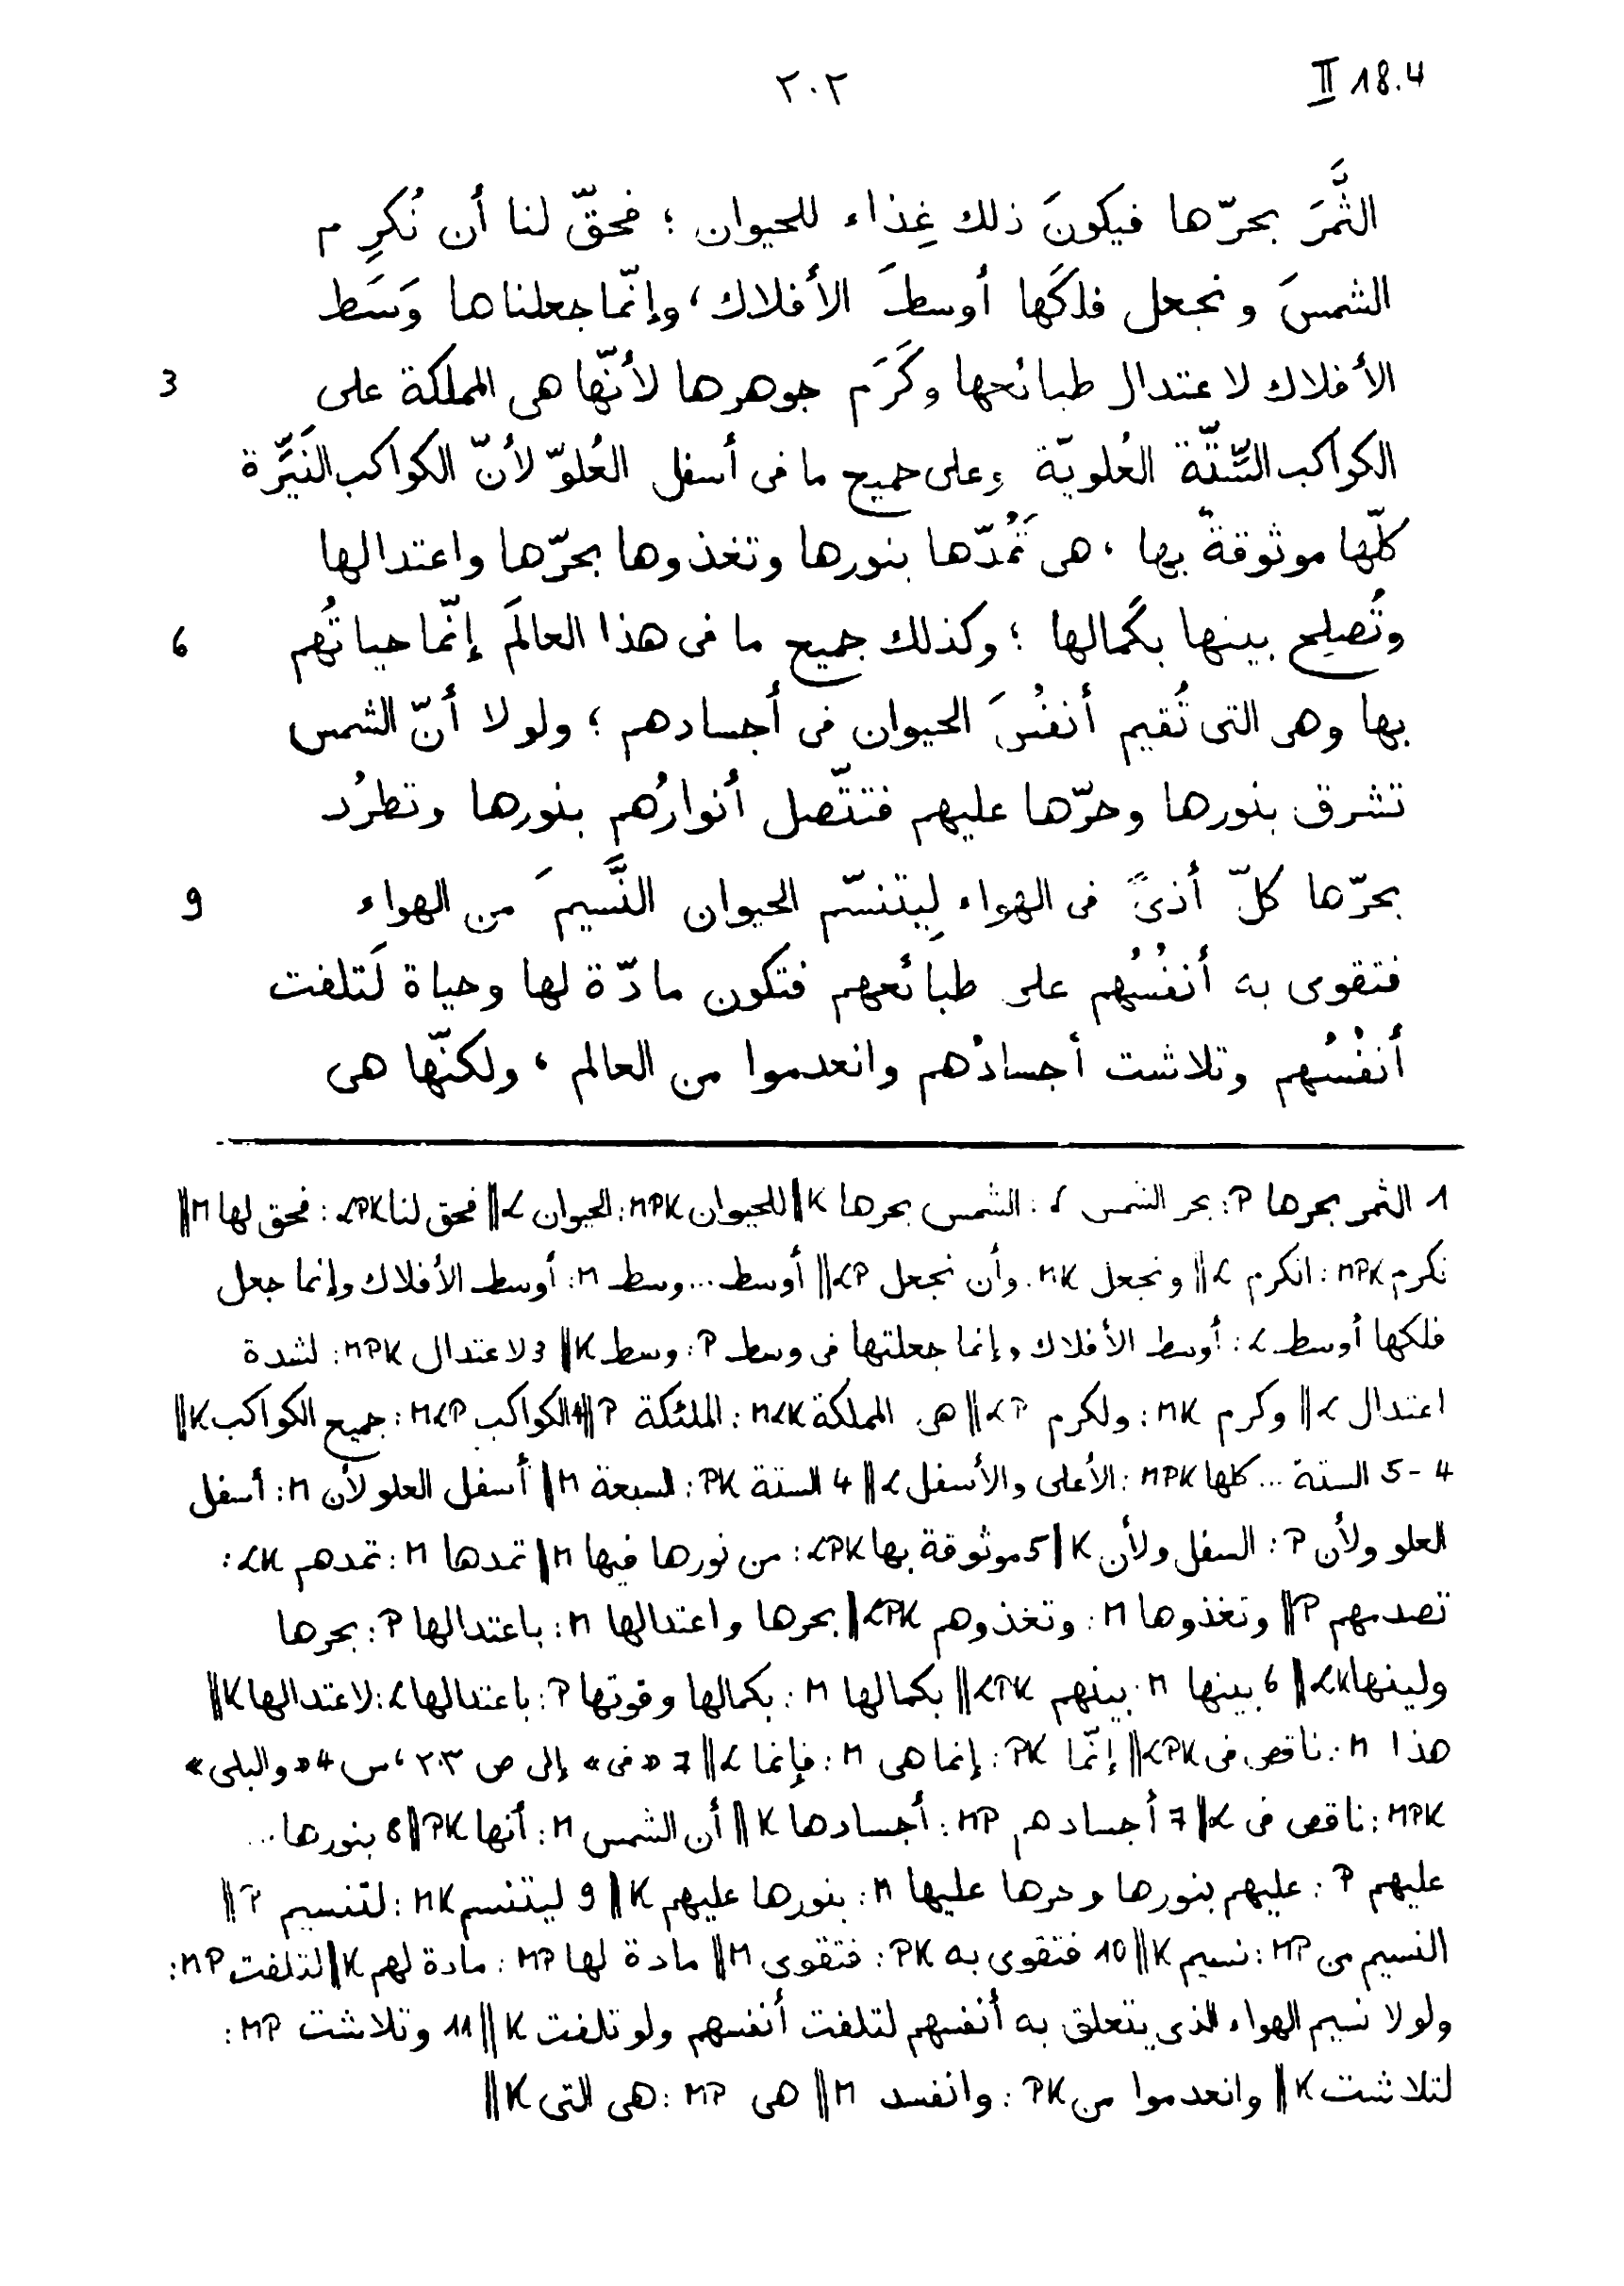 II 18.4
٢٠٢
الثَّمَرَ بحرّها فيكونَ ذلك غِذاء للحيوان ؛ فحقّ لنا أن نُكرِم
الشمسَ ونجعل فلكَها أوسطَ الأفلاك، وإنّما جعلناها وَسَط
الأفلاك لاعتدال طبائعها وكَرَم جوهرها لأنّها هى المملكة على
3
الكواكب السّتّة العُلويّة وعلى جميع ما فى أسفل العُلوّ لأنّ الكواكب النَيِّرة
كلَّها موثوقةٌ بها ، هى تُمدّها بنورها وتغذوها بحرّها واعتدالها
وتُصلِح بينها بكمالها ؛ وكذلك جميع ما فى هذا العالَم إنّما حياتُهم
6
بها وهى التى تُقيم أنفُسَ الحيوان فى أجسادهم ؛ ولولا أنّ الشمس
تشرق بنورها وحرّها عليهم فتتّصل أنوارُهم بنورها وتطرُد
بحرّها كلّ أذىً فى الهواء لِيتنسّم الحيوان النَّسيمَ من الهواء
9
فتقوى به أنفُسُهم على طبائعهم فتكون مادّة لها وحياة لَتلفت
أنفُسُهم وتلاشت أجسادُهم وانعدموا من العالم ، ولكنّها هى
1 الثمر بحرها P: بحر الشمس L: الشمس بحرها K ‖ للحيوان MPK: الحيوان L ‖ فحق لنا LPK: فحق لها M ‖
نكرم MPK: انكرم L ‖ ونجعل MK: وأن نجعل LP ‖ أوسط...وسط M: أوسط الأفلاك وإنما جعل
فلكها أوسط L: أوسط الأفلاك وإنما جعلتها فى وسط P: وسط K ‖ 3 لاعتدال MPK: لشدة
اعتدال L ‖ وكرم MK: ولكرم LP ‖ هى المملكة MLK: الملئكة P ‖ 4 الكواكب MLP: جميع الكواكب K ‖
4-5 الستة ... كلها MPK: الأعلى والأسفل L ‖ 4 الستة PK: السبعة M ‖ أسفل العلو لأن M: أسفل
العلو ولأن P: السفل ولأن K ‖ 5 موثوقة بها LPK: من نورها فيها M ‖ تمدها M: تمدهم LK:
P ‖ وتغذوها M: وتغذوهم LPK ‖ بحرها واعتدالها M: باعتدالها P: بحرها
ولينها LK ‖ 6 بينها M: بينهم LPK ‖ بكمالها M: بكمالها وقوتها P: باعتدالها L: لاعتدالها K ‖
هذا M: ناقص فى LPK ‖ إنّما PK: إنما هى M: فإنما L ‖ 7 «فى» إلى ص ٢٠٣، س 4 «والبلى»
MPK: ناقص فى L ‖ 7 أجسادهم MP: أجسادها K ‖ أن الشمس M: أنها PK ‖ 8 بنورها...
عليهم P: عليهم بنورها وحرها عليها M: بنورها عليهم K ‖ 9 ليتنسم MK: لتنسيم P ‖
النسيم من MP: نسيم K ‖ 10 فتقوى به PK: فتقوى M ‖ مادة لها MP: مادة لهم K ‖ لتلفت MP:
ولولا نسيم الهواء الذى يتعلق به أنفسهم لتلفت أنفسهم ولو تلفت K ‖ 11 وتلاشت MP:
لتلاشت K ‖ وانعدموا من PK: وانفسد M ‖ هى MP: هى التى K ‖